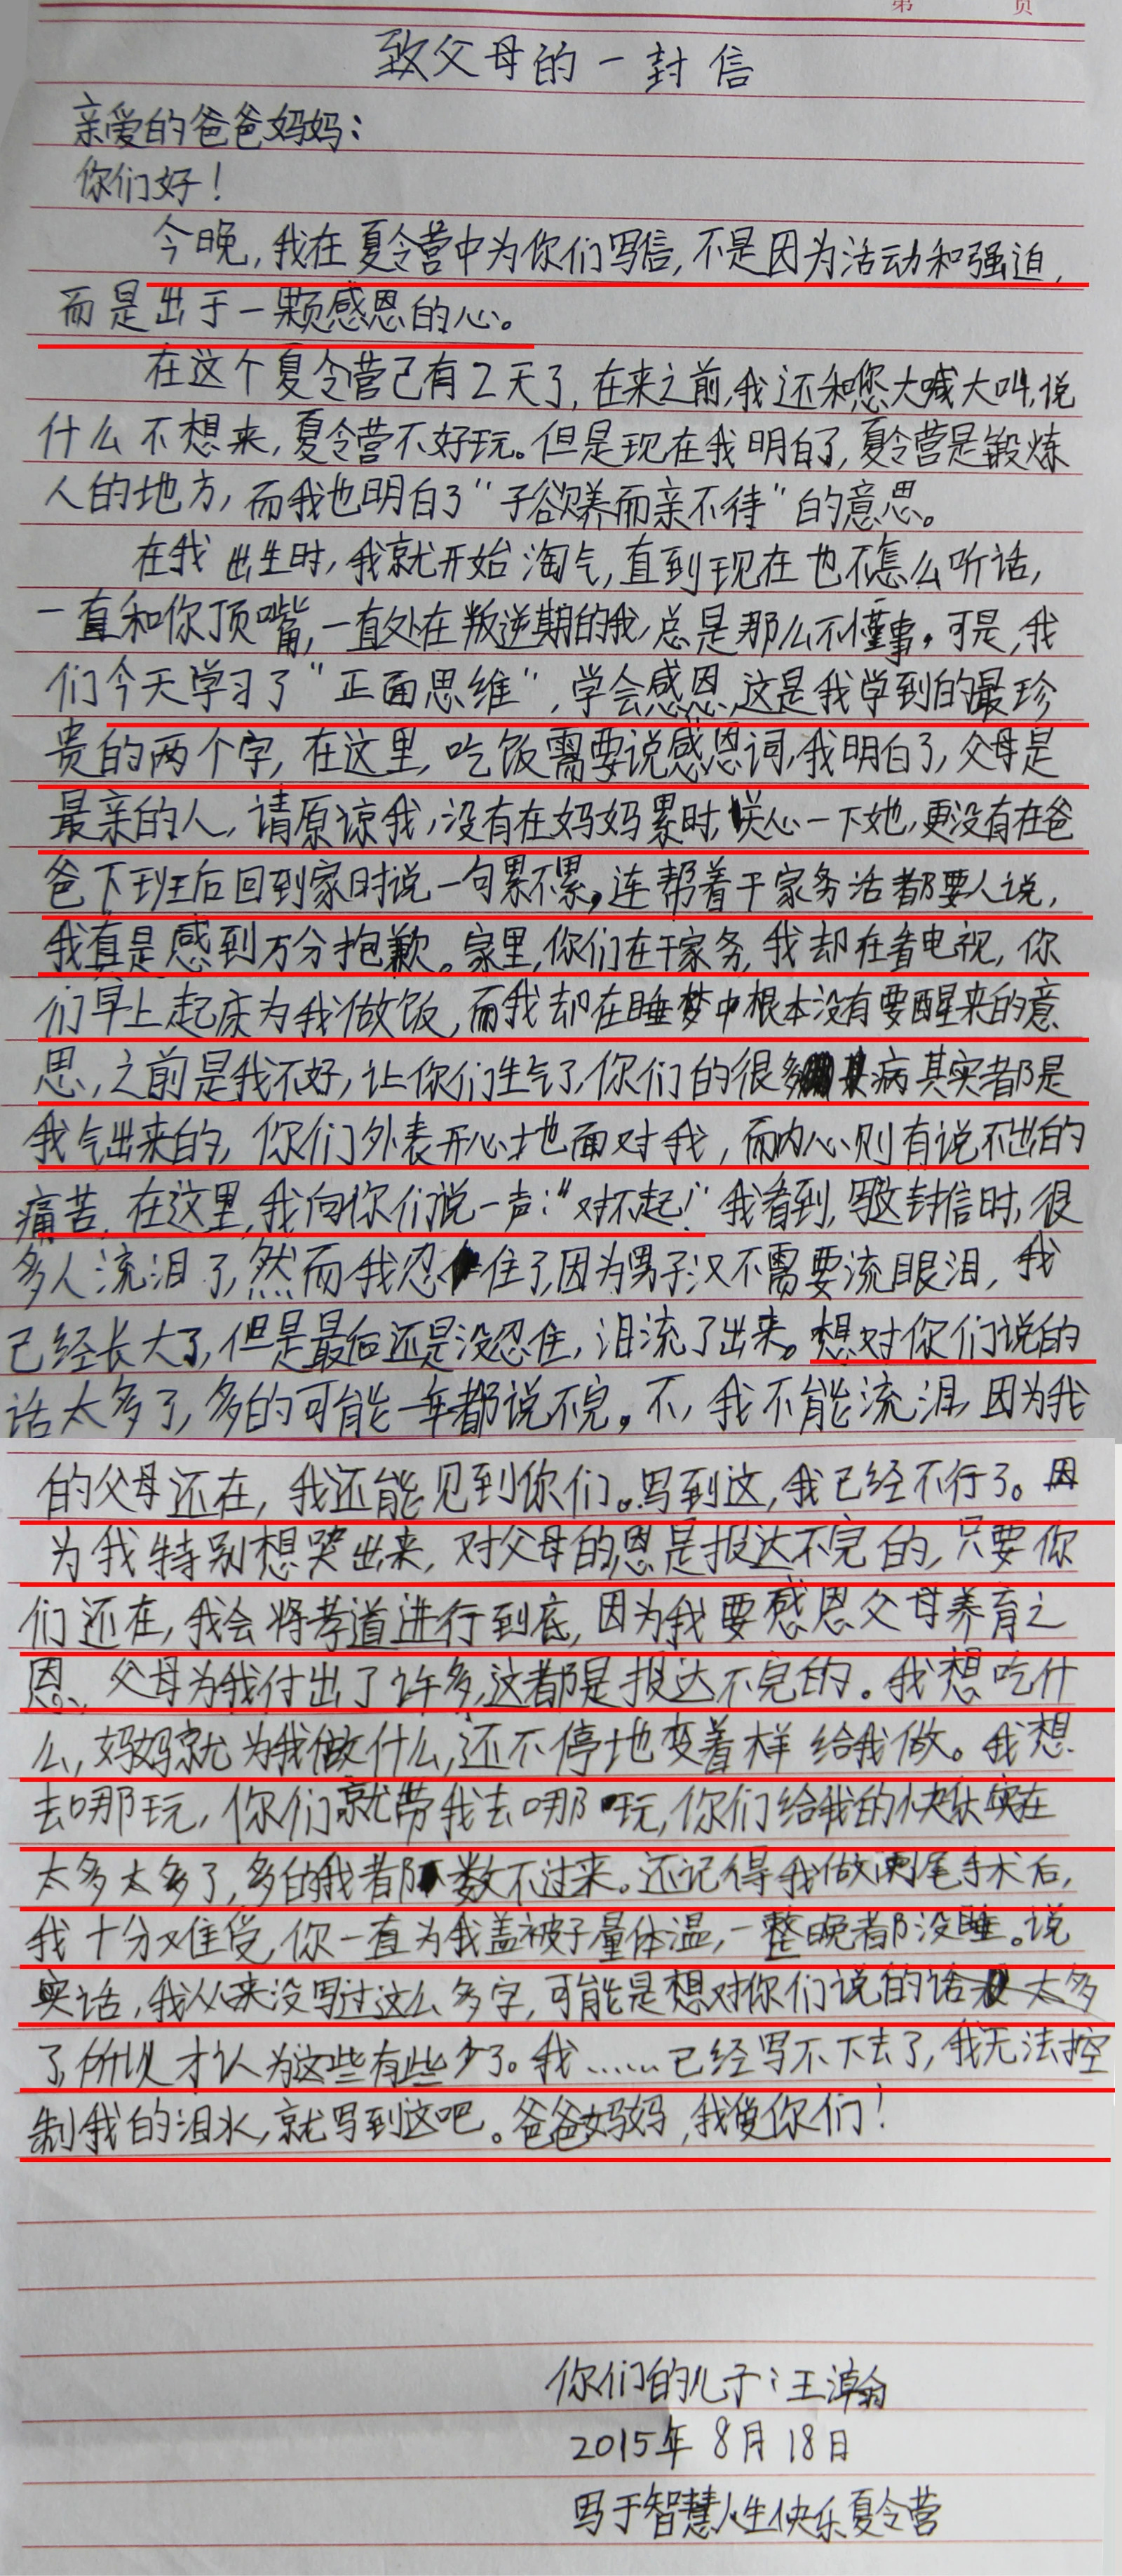 第 页
致父母的一封信
亲爱的爸爸妈妈：
你们好！
今晚，我在夏令营中为你们写信，不是因为活动和强迫，
而是出于一颗感恩的心。
在这个夏令营已有2天了，在来之前，我还和您大喊大叫，说
什么不想来，夏令营不好玩。但是现在我明白了，夏令营是锻炼
人的地方，而我也明白了“子欲养而亲不待”的意思。
在我出生时，我就开始淘气，直到现在也不怎么听话，
一直和你顶嘴，一直处在叛逆期的我，总是那么不懂事。可是，我
们今天学习了“正面思维”，学会感恩，这是我学到的最珍
贵的两个字，在这里，吃饭需要说感恩词，我明白了，父母是
最亲的人，请原谅我，没有在妈妈累时，关心一下她，更没有在爸
爸下班后回到家时说一句累不累，连帮着干家务活都要人说，
我真是感到万分抱歉。家里，你们在干家务，我却在看电视，你
们早上起床为我做饭，而我却在睡梦中根本没有要醒来的意
思，之前是我不好，让你们生气了，你们的很多病其实都是
我气出来的，你们外表开心地面对我，而内心则有说不出的
痛苦，在这里，我向你们说一声：“对不起！”我看到，写这封信时，很
多人流泪了，然而我忍住了，因为男子汉不需要流眼泪，我
已经长大了，但是最后还是没忍住，泪流了出来。想对你们说的
话太多了，多的可能一年都说不完。不，我不能流泪，因为我
的父母还在，我还能见到你们。写到这，我已经不行了。因
为我特别想哭出来，对父母的恩是报达不完的，只要你
们还在，我会将孝道进行到底，因为我要感恩父母养育之
恩、父母为我付出了许多，这都是报达不完的。我想吃什
么，妈妈就为我做什么，还不停地变着样给我做。我想
去哪玩，你们就带我去哪玩，你们给我的快乐实在
太多太多了，多的我都数不过来。还记得我做阑尾手术后，
我十分难受，你一直为我盖被子量体温，一整晚都没睡。说
实话，我从来没写过这么多字，可能是想对你们说的话太多
了，所以才认为这些有些少了。我……已经写不下去了，我无法控
制我的泪水，就写到这吧。爸爸妈妈，我爱你们！
你们的儿子：王瀚
2015年8月18日
写于智慧人生快乐夏令营